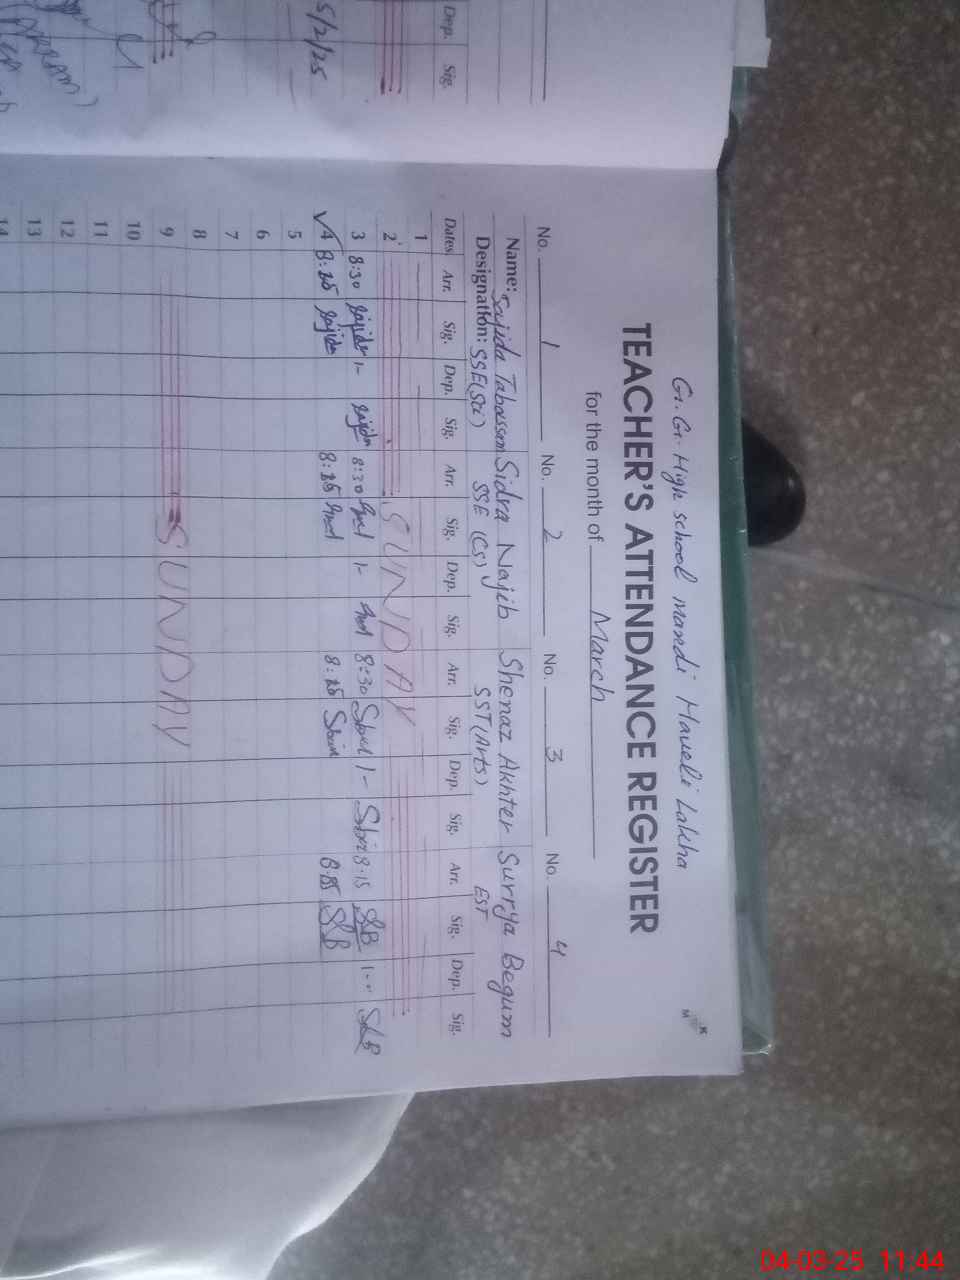 G. G. High school mandi Haveli Lakha
TEACHER'S ATTENDANCE REGISTER
for the month of March
No. 1 No. 2 No. 3 No. 4
Name: Sajida Tabassam Sidra Najib Shenaz Akhter Surrya Begum
Designation: SSE(Sci) SSE (CS) SST(Arts) EST
Dates Arr. Sig. Dep. Sig. Arr. Sig. Dep. Sig. Arr. Sig. Dep. Sig. Arr. Sig. Dep. Sig.
1
2 SUNDAY
3 8:30 Sajida 1- Sajida 8:30 1- 8:30 1- 8:15 SB 1-- SB
4 Sajida SB
5
6
7
8
9 SUNDAY
10
11
12
13
14
Dep. Sig.
5/2/25
K
M
04-03-25 11:44